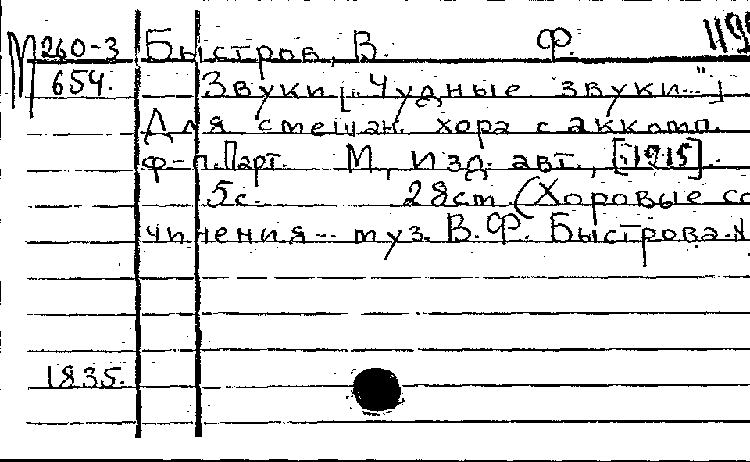 М 260-3 Быстров, В. Ф.
654. Звуки [„Чудные звуки..."]
Для смешан. хора с аккомп.
ф-п. Парт. М., изд. авт., [1915].
5с. 28 см (Хоровые со
чинения... муз. В.Ф. Быстрова.
1835.